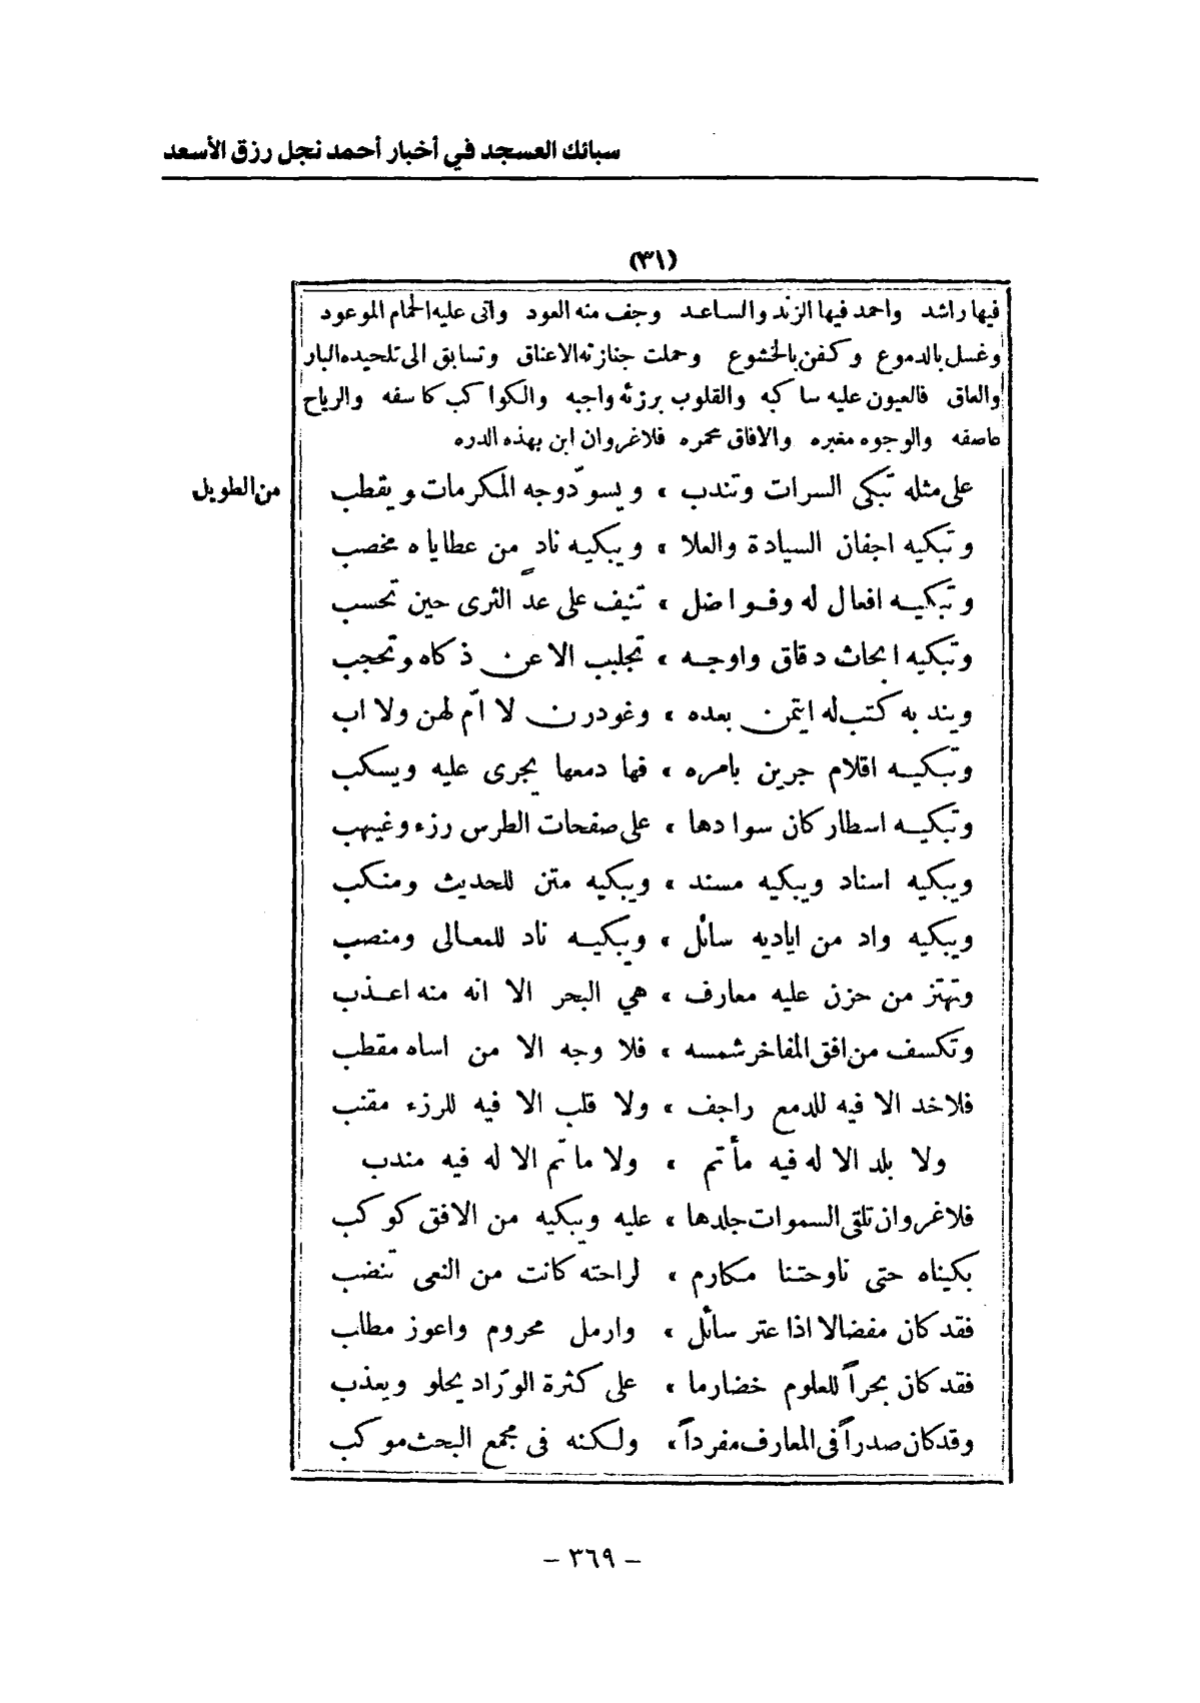 سبائك العسجد في أخبار أحمد نجل رزق الأسعد
(٣١)
فيها راشد واحمد فيها الزند والساعد وجف منه العود واتى عليه الحمام الموعود
وغسل بالدموع وكفن بالخشوع وحملت جنازته الاعناق وتسابق الى تلحيده البار
والعاق فالعيون عليه ساكبه والقلوب برزئه واجبه والكواكب كاسفه والرياح
عاصفه والوجوه مغبره والافاق محمره فلاغروان ابن بهذه الدره
من الطويل
على مثله تبكى السرات وتندب ، ويسودّ وجه المكرمات ويقطب
وتبكيه اجفان السيادة والعلا ، ويبكيه نادٍ من عطاياه مخصب
وتبكيه افعال له وفواضل ، تنيف على عدّ الثرى حين تحسب
وتبكيه ابحاث دقاق واوجه ، تجلبب الا عن ذكاه وتحجب
ويندبه كتب له ايتمن بعده ، وغودرن لا امّ لهن ولا اب
وتبكيه اقلام جرين بامره ، فها دمعها يجرى عليه ويسكب
وتبكيه اسطار كان سوادها ، على صفحات الطرس رزء وغيهب
ويبكيه اسناد ويبكيه مسند ، ويبكيه متن للحديث ومنكب
ويبكيه واد من اياديه سائل ، ويبكيه ناد للمعالى ومنصب
وتهتز من حزن عليه معارف ، هي البحر الا انه منه اعذب
وتكسف من افق المفاخر شمسه ، فلا وجه الا من اساه مقطب
فلا خد الا فيه للدمع راجف ، ولا قلب الا فيه للرزء مقنب
ولا بلد الا له فيه مأتم ، ولا ماتم الا له فيه مندب
فلاغروان تلقى السموات جلدها ، عليه ويبكيه من الافق كوكب
بكيناه حتى ناوحتنا مكارم ، لراحته كانت من النعى تنضب
فقد كان مفضالا اذا عتر سائل ، وارمل محروم واعوز مطلب
فقد كان بحراً للعلوم خضارما ، على كثرة الورّاد يحلو ويعذب
وقد كان صدراً فى المعارف مفرداً ، ولكنه فى مجمع البحث موكب
– ٣٦٩ –